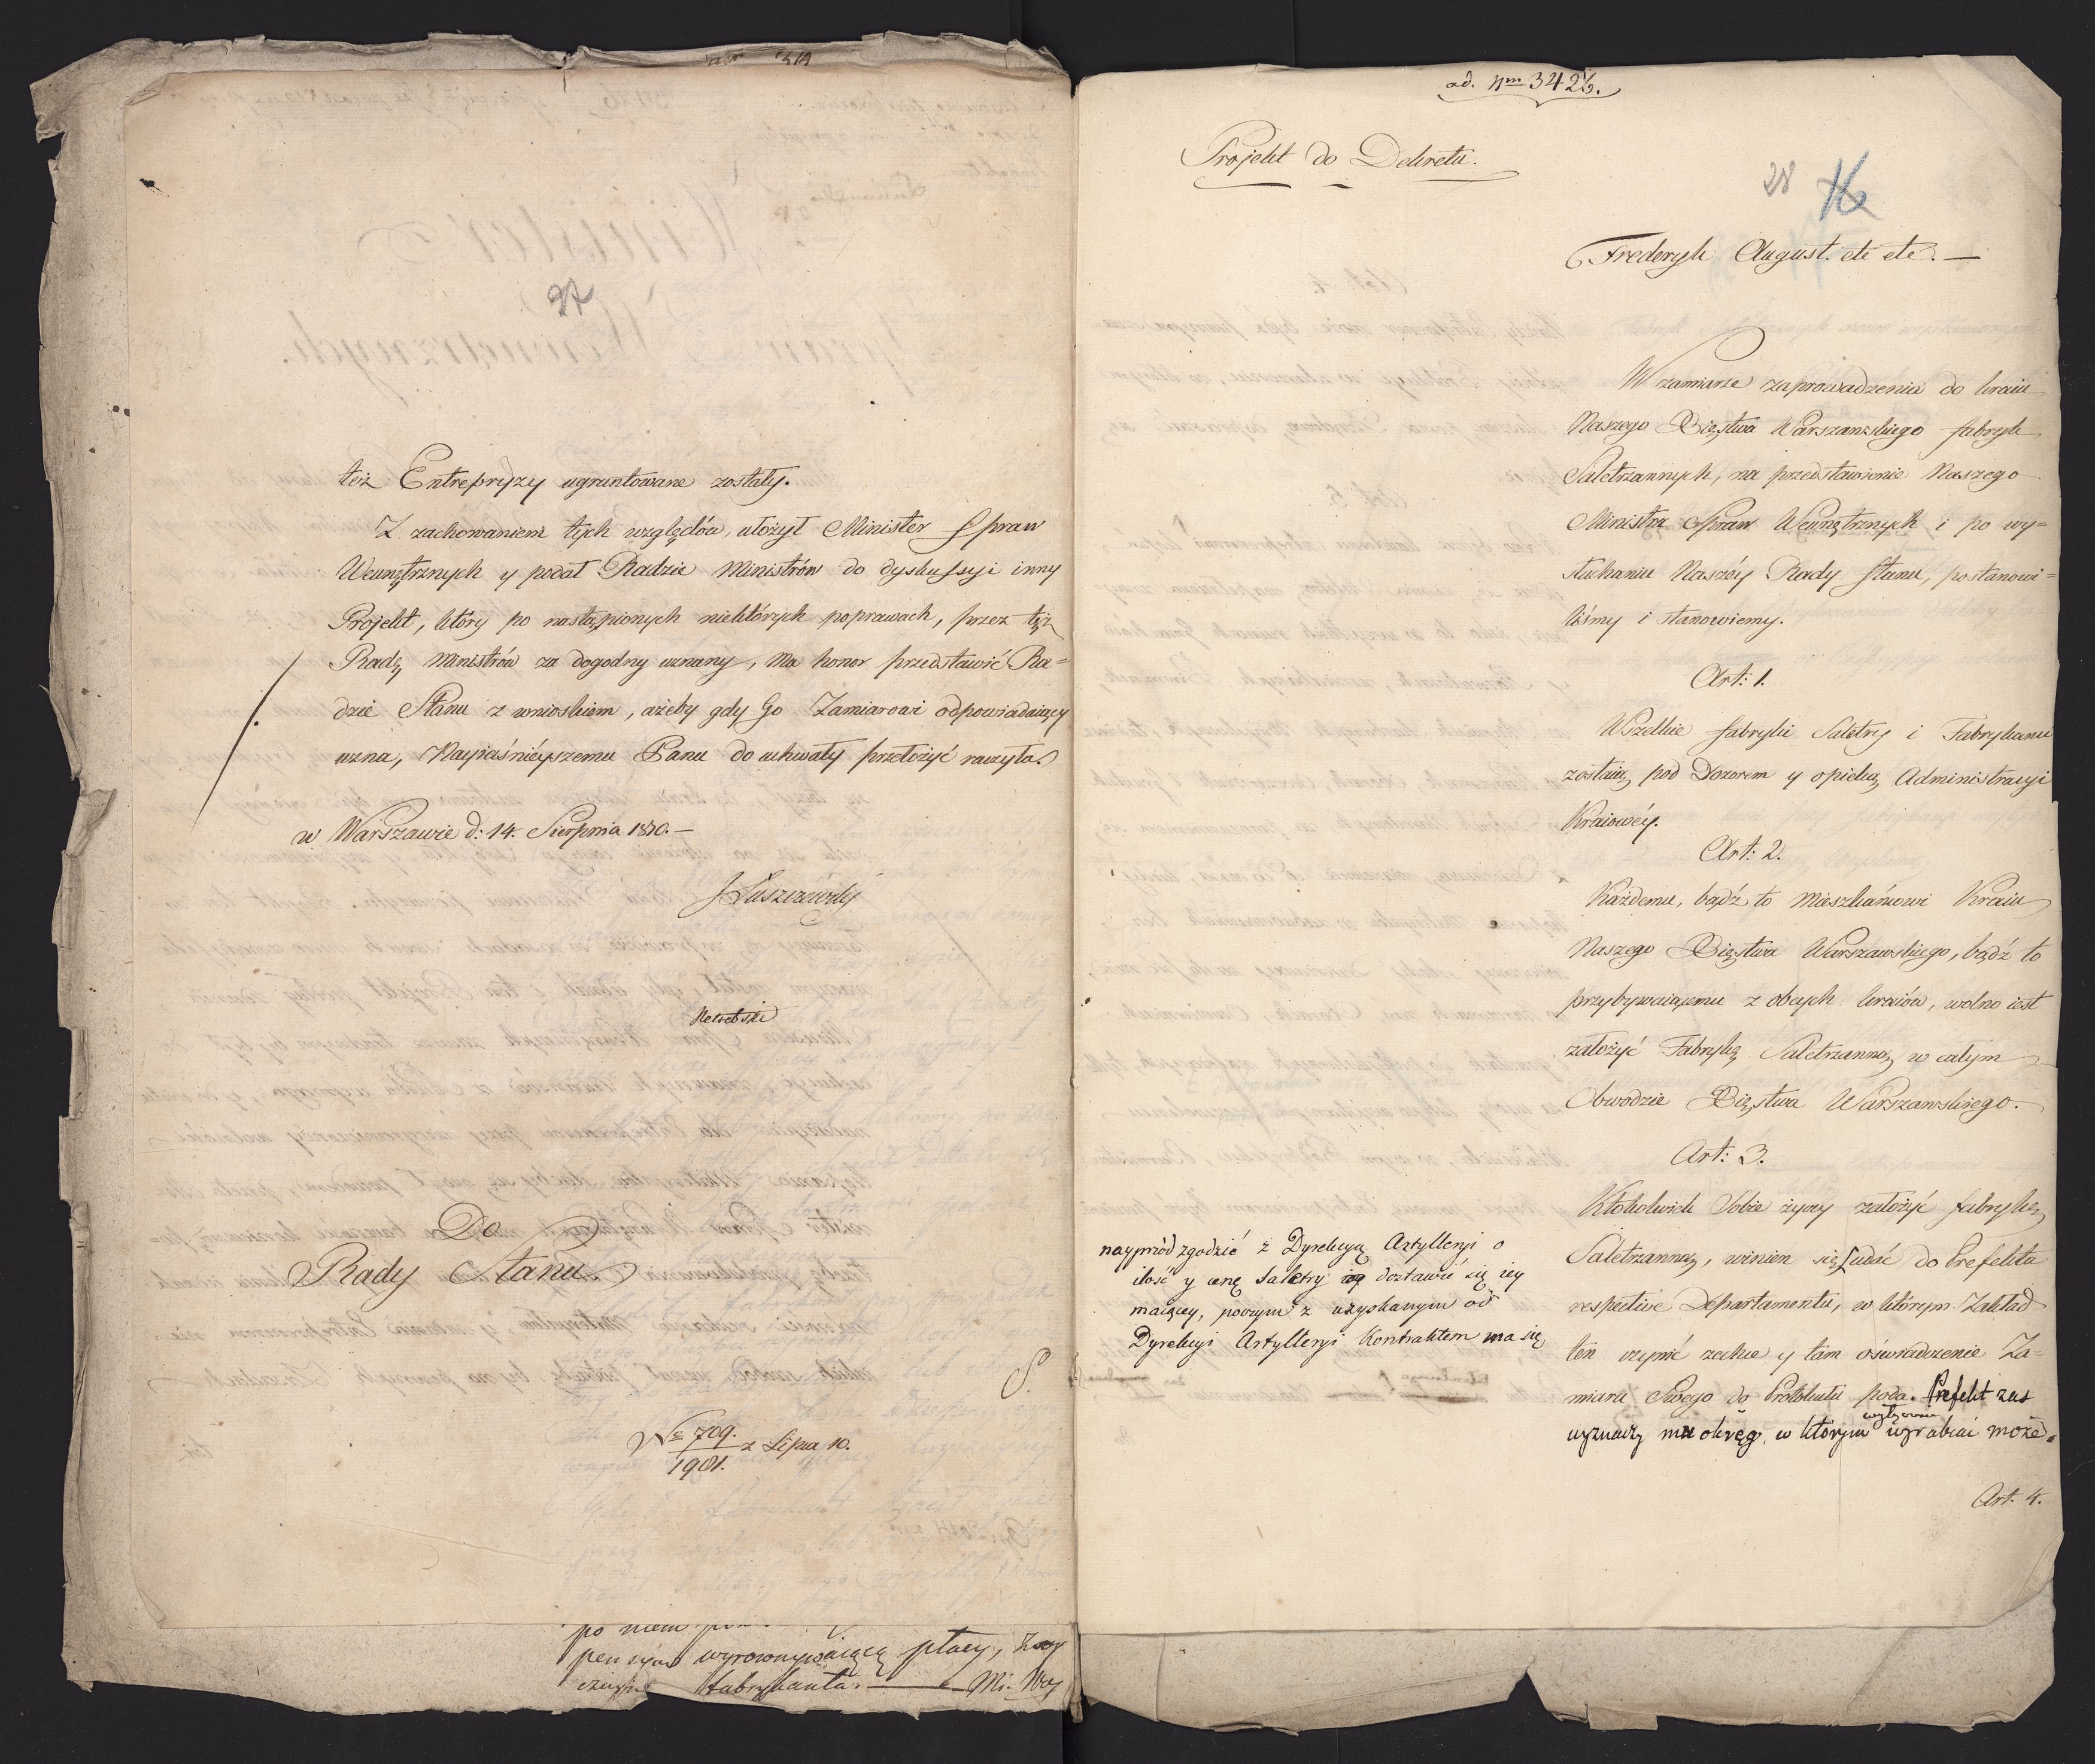 27
też Entrepryzy ugruntowane zostały.
Z zachowaniem tych względów, ułożył Minister Spraw
Wewnętrznych y podał Radzie Ministrów do dyskussyi inny
Projekt, który po nastąpionych niektórych poprawach, przez tęż
Radę Ministrów za dogodny uznany, ma honor przedstawić Ra=
dzie Stanu z wnioskiem, ażeby gdy Go Zamiarowi odpowiadaiący
uzna, Nayiaśnieyszemu Panu do uchwały przełożyć raczyła.
w Warszawie d: 14. Sierpnia 1810. —
JŁuszczewski
Do
Rady Stanu.
No 709. z Lipca 10.
1981.
wyrownywaiącą płacy,
fabrykanta. —
ad. Nrm 3426.
Projekt do Dekretu.
28 16
Fryderyk August. etc etc. —
W zamiarze zaprowadzenia do kraiu
Naszego Xięstwa Warszawskiego fabryk
Saletrzannych, na przedstawienie Naszego
Ministra Spraw Wewnętrznych i po wy=
słuchaniu Naszéy Rady Stanu, postanowi=
liśmy i stanowiemy.
Art: 1.
Wszelkie fabryki Saletry i Fabrykanci
zostaią pod Dozorem y opieką Administracyi
Kraiowéy.
Art: 2.
Każdemu, bądź to Mieszkańcowi Kraiu
Naszego Xięstwa Warszawskiego, bądź to
przybywaiącemu z obcych kraiów, wolno iest
założyć Fabrykę Saletrzanną w całym
Obwodzie Xięstwa Warszawskiego.
Art: 3.
Ktokolwiek Sobie życzy założyć fabrykę
Saletrzanną, winien się udać do Prefekta
respective Departamentu, w którym Zakład
ten czynić zechce y tam oświadczenie Za=
miaru Swego do Protokułu poda. Prefekt zaś
wyznaczy mu okręg, w którym wyłącznie wyrabiać może.
nayprzód zgodzić z Dyrekcyą Artylleryi o
ilość y cenę Saletry dostawić się iey
maiącey, poczym z uzyskanym od
Dyrekcyi Artylleryi Kontraktem ma się
Art. 4.